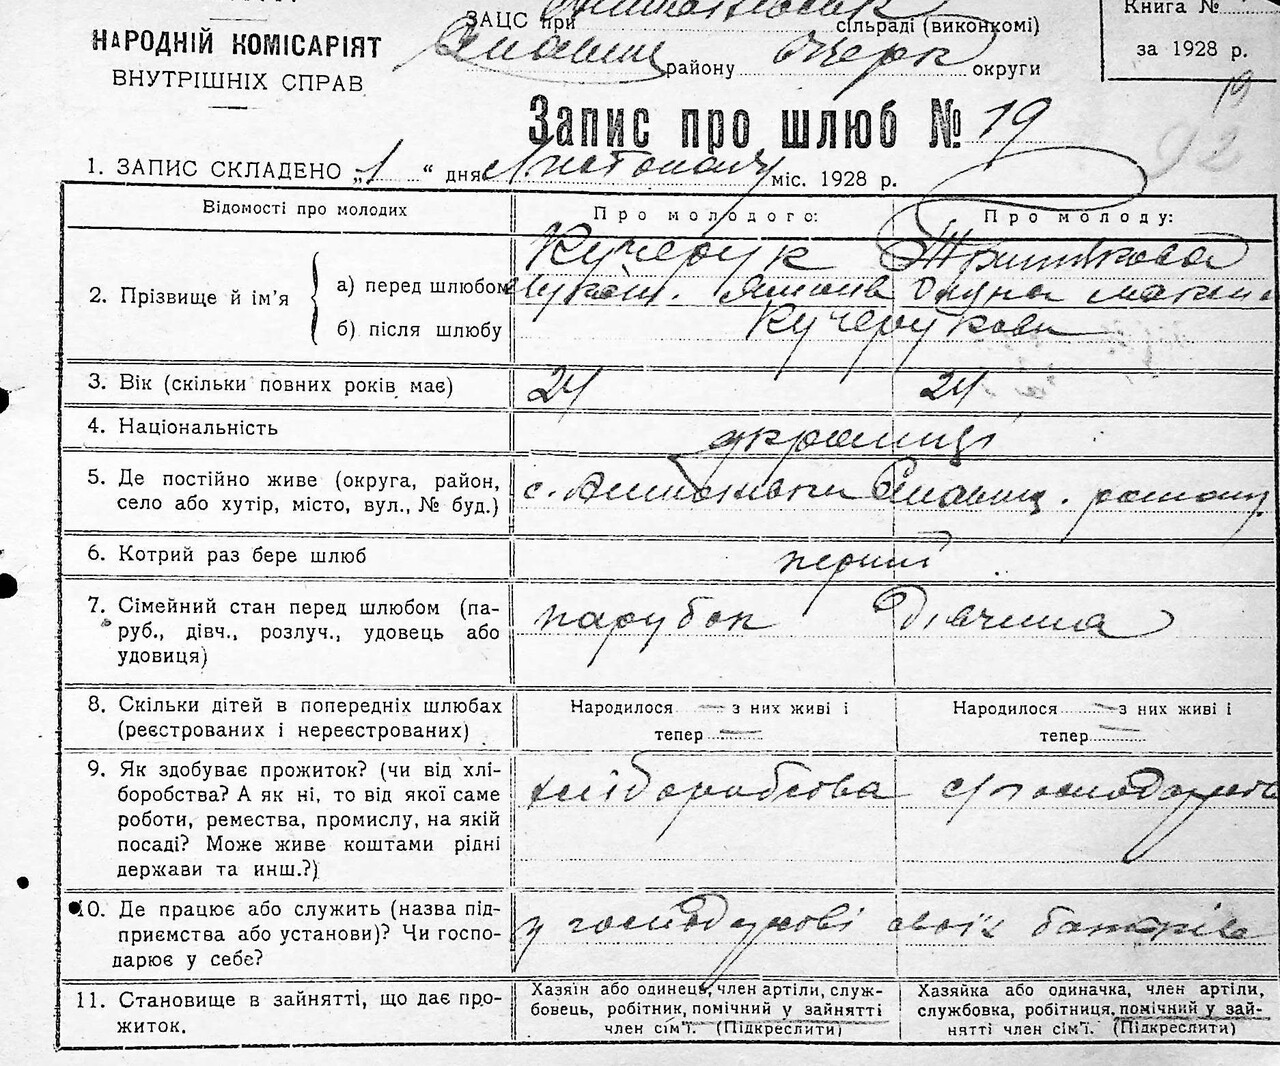 ЗАЦС при сільраді (виконкомі)
Книга №
НАРОДНІЙ КОМІСАРІЯТ
ВНУТРІШНІХ СПРАВ
району округи
за 1928 р.
19
92
Запис про шлюб № 19
1. ЗАПИС СКЛАДЕНО „1“ дня Листопаду міс. 1928 р.
Відомості про молодих
Про молодого:
Про молоду:
2. Прізвище й ім'я
а) перед шлюбом
Кучерук
б) після шлюбу
Кучерукови
3. Вік (скільки повних років має)
24
24
4. Національність
українці
5. Де постійно живе (округа, район,
село або хутір, місто, вул., № буд.)
с. району
6. Котрий раз бере шлюб
перший
7. Сімейний стан перед шлюбом (па-
руб., дівч., розлуч., удовець або
удовиця)
парубок
дівчина
8. Скільки дітей в попередніх шлюбах
(реєстрованих і нереєстрованих)
Народилося — з них живі і
тепер —
Народилося — з них живі і
тепер —
9. Як здобуває прожиток? (чи від хлі-
боробства? А як ні, то від якої саме
роботи, ремества, промислу, на якій
посаді? Може живе коштами рідні
держави та инш.?)
хліборобства
10. Де працює або служить (назва під-
приємства або установи)? Чи госпо-
дарює у себе?
у господарові своїх батьків
11. Становище в зайнятті, що дає про-
житок.
Хазяїн або одинець, член артіли, служ-
бовець, робітник, помічний у зайнятті
член сім'ї. (Підкреслити)
Хазяйка або одиначка, член артіли,
службовка, робітниця, помічний у зай-
нятті член сім'ї. (Підкреслити)